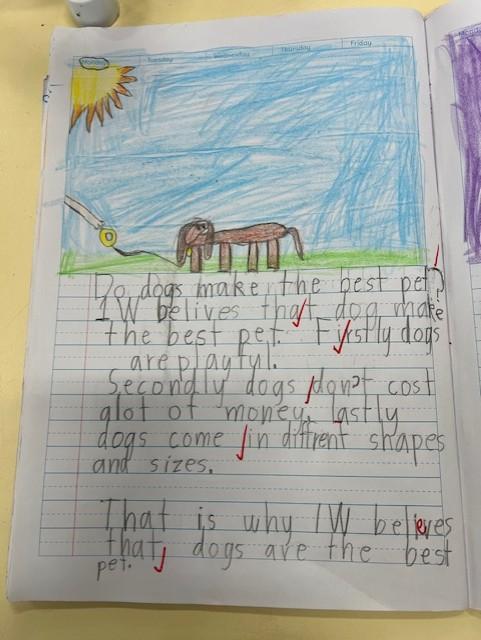 Monday Tuesday Wednesday Thursday Friday
Do dogs make the best pet?
1W belives that dog make
the best pet. Firstly dogs
are playful.
Secondly dogs don't cost
alot of money. Lastly
dogs come in diffrent shapes
and sizes.
That is why 1W believes
that dogs are the best
pet.